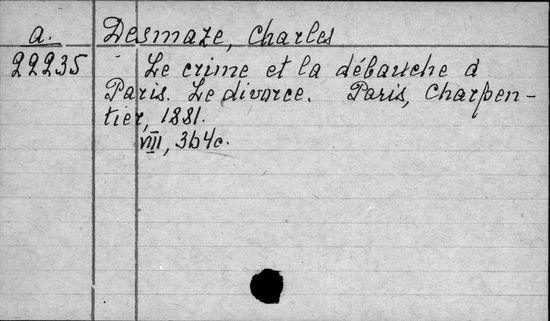 a. Desmaze, Charles
22235 Le crime et la débauche à
Paris. Le divorce. Paris, Charpen-
tier, 1881.
VIII, 364c.